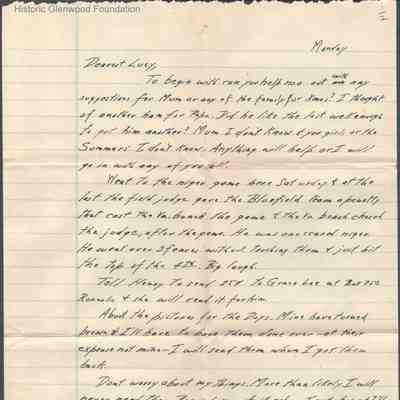 Historic Glenwood Foundation
Monday
Dearest Lucy,
To begin with can you help me out with any
suggestions for Mum or any of the family for Xmas? I thought
of another ham for Papa. Did he like the last well enough
to get him another? Mum I don't know & you girls or the
Summers I don't know. Anything will help or I will
go in with any of you all.
Went to the negro game here Saturday & at the
last the field judge gave the Bluefield team a penalty
that cost the Va. board the game & the Va. bench chased
the judge, after the game. He was one scared nigro.
He went over 3 fences without touching them & just hit
the top of the 4th. Big laugh.
Tell Henry to send 25¢ to Grace Lee at Box 250
Roanoke & she will send it for him.
About the pictures for the Days. Mine have turned
brown & I'll have to have them done over - at their
expense not mine - I will send them when I get them
back.
Dont worry about my things. More than likely I will
never need the